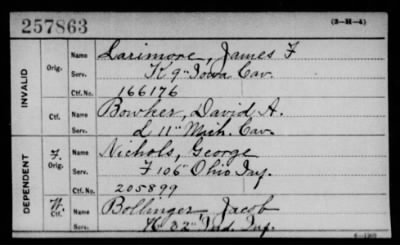 257863 (3-H-4)
INVALID
Orig. Name Larimore, James F
Serv. K 9" Iowa Cav.
Ctf. No. 166176
Ctf. Name Bowker, David A.
Serv. L 11" Mich. Cav.
DEPENDENT
F. Orig. Name Nichols, George
Serv. F 106" Ohio Inf.
Ctf. No. 205899
W. Ctf. Name Bollinger, Jacob
Serv. K 32" Ind. Inf.